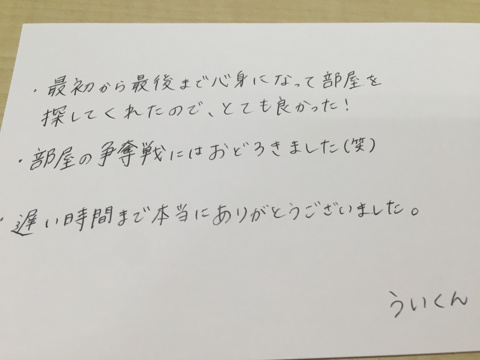 ・最初から最後まで心身になって部屋を
探してくれたので、とても良かった!
・部屋の争奪戦にはおどろきました(笑)
・遅い時間まで本当にありがとうございました。
ういくん